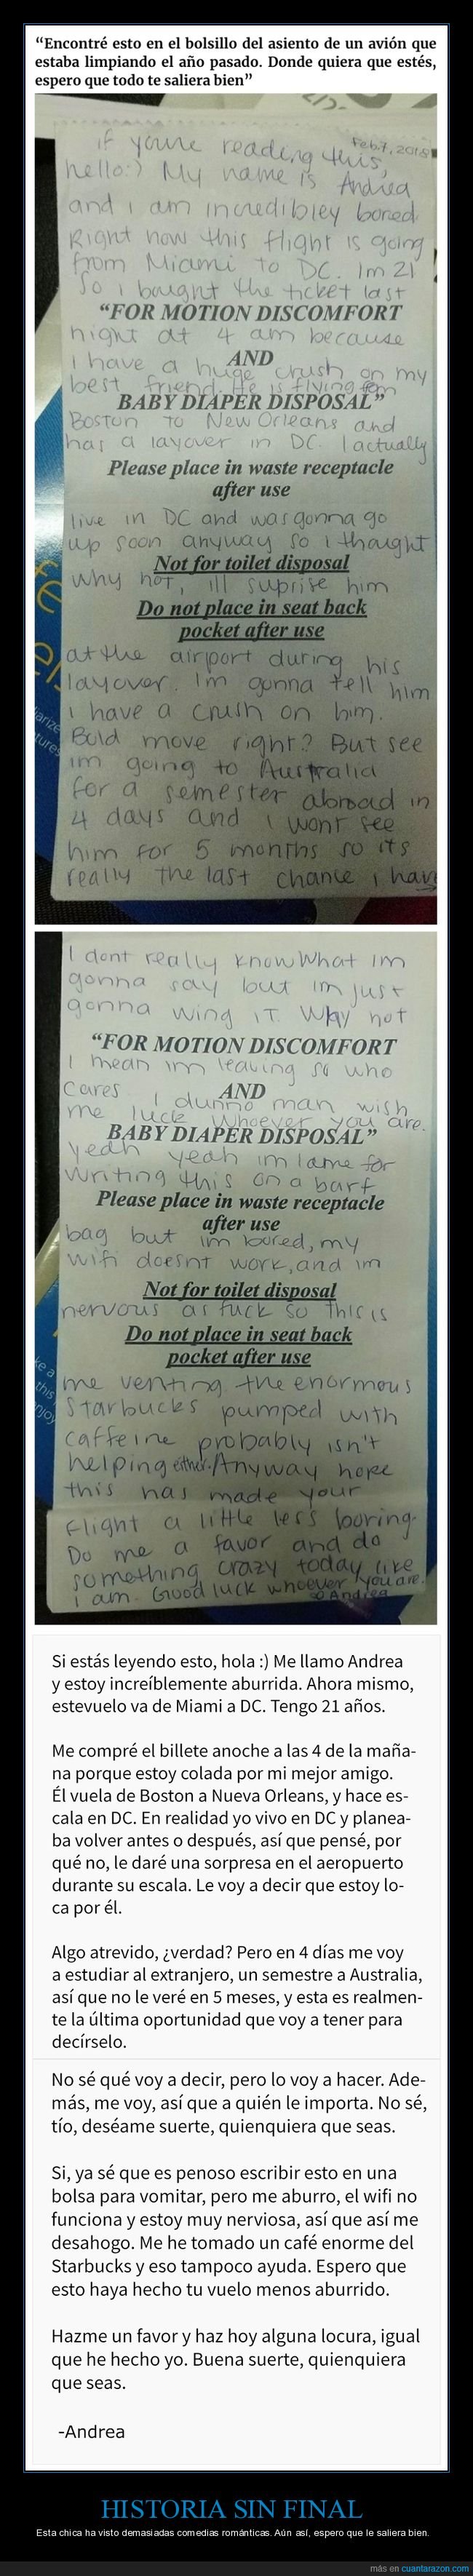 “Encontré esto en el bolsillo del asiento de un avión que
estaba limpiando el año pasado. Donde quiera que estés,
espero que todo te saliera bien”
Feb 7, 2018
if youre reading this,
hello:) My name is Andrea
and i am incredibley bored.
Right now this flight is going
from Miami to DC. Im 21
So i bought the ticket last
“FOR MOTION DISCOMFORT
night at 4 am because
AND
i have a huge crush on my
best friend. He is flying from
BABY DIAPER DISPOSAL”
Boston to New Orleans and
has a layover in DC. I actually
Please place in waste receptacle
after use
live in DC and was gonna go
up soon anyway so i thought
Not for toilet disposal
why not, ill suprise him
Do not place in seat back
pocket after use
at the airport during his
layover. Im gonna tell him
i have a crush on him.
Bold move right? But see
im going to Australia
for a semester abroad in
4 days and i wont see
him for 5 months so its
really the last chance i have
I dont really know what im
gonna say but im just
gonna wing it. Why not
“FOR MOTION DISCOMFORT
I mean im leaving so who
AND
Cares. I dunno man wish
me luck whoever you are.
BABY DIAPER DISPOSAL”
yeah yeah im lame for
writing this on a barf
Please place in waste receptacle
after use
bag but im bored, my
wifi doesnt work, and im
Not for toilet disposal
nervous as fuck so this is
Do not place in seat back
pocket after use
me venting the enormous
Starbucks pumped with
caffeine probably isn't
helping either. Anyway hope
this has made your
flight a little less boring.
Do me a favor and do
something crazy today like
i am. Good luck whoever you are.
Andrea
Si estás leyendo esto, hola :) Me llamo Andrea
y estoy increíblemente aburrida. Ahora mismo,
estevuelo va de Miami a DC. Tengo 21 años.
Me compré el billete anoche a las 4 de la maña-
na porque estoy colada por mi mejor amigo.
Él vuela de Boston a Nueva Orleans, y hace es-
cala en DC. En realidad yo vivo en DC y planea-
ba volver antes o después, así que pensé, por
qué no, le daré una sorpresa en el aeropuerto
durante su escala. Le voy a decir que estoy lo-
ca por él.
Algo atrevido, ¿verdad? Pero en 4 días me voy
a estudiar al extranjero, un semestre a Australia,
así que no le veré en 5 meses, y esta es realmen-
te la última oportunidad que voy a tener para
decírselo.
No sé qué voy a decir, pero lo voy a hacer. Ade-
más, me voy, así que a quién le importa. No sé,
tío, deséame suerte, quienquiera que seas.
Si, ya sé que es penoso escribir esto en una
bolsa para vomitar, pero me aburro, el wifi no
funciona y estoy muy nerviosa, así que así me
desahogo. Me he tomado un café enorme del
Starbucks y eso tampoco ayuda. Espero que
esto haya hecho tu vuelo menos aburrido.
Hazme un favor y haz hoy alguna locura, igual
que he hecho yo. Buena suerte, quienquiera
que seas.
-Andrea
HISTORIA SIN FINAL
Esta chica ha visto demasiadas comedias románticas. Aún así, espero que le saliera bien.
más en cuantarazon.com